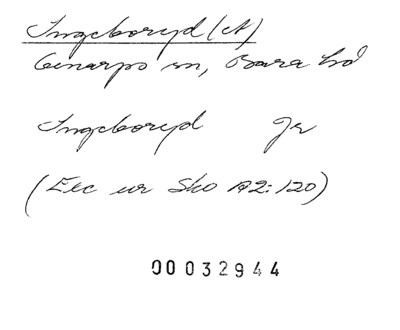 Ingeboryd (A)
Genarps sn, Bara hd
Ingeboryd Gr
(Exc ur Sko A2:120)
00032944